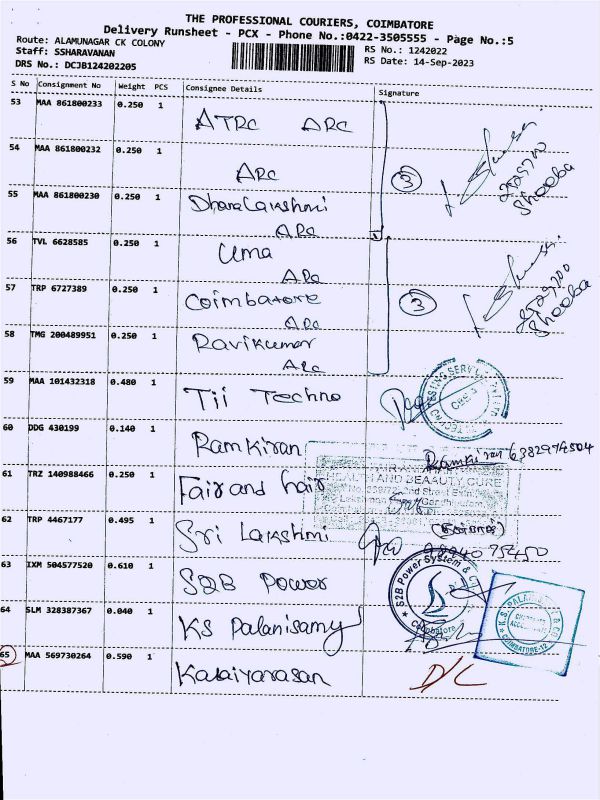 THE PROFESSIONAL COURIERS, COIMBATORE
Delivery Runsheet - PCX - Phone No.:0422-3505555 - Page No.:5
Route: ALAMUNAGAR CK COLONY
RS No.: 1242022
Staff: SSHARAVANAN
RS Date: 14-Sep-2023
DRS No.: DCJB124202205
S No Consignment No Weight PCS Consignee Details Signature
53 MAA 861800233 0.250 1
ATRC ARC
54 MAA 861800232 0.250 1
ARC
3
Shooba
55 MAA 861800230 0.250 1
Dhanalakshmi
ARC
56 TVL 6628585 0.250 1
Uma
ARC
57 TRP 6727389 0.250 1
Coimbatore
ARC
3
Shooba
58 TMG 200489951 0.250 1
Ravikumar
ARC
59 MAA 101432318 0.480 1
Tii Techno
60 DDG 430199 0.140 1
Ramkiran
Ramkiran 6382974504
61 TRZ 140988466 0.250 1
Fair and hair
HEALTH AND BEAAUTY CURE
62 TRP 4467177 0.495 1
Sri Lakshmi
63 IXM 504577520 0.610 1
S2B Power
S2B Power System & C
Coimbatore
64 SLM 328387367 0.040 1
KS Palanisamy
K.S. PALANI & CO
CHARTERED
ACCOUNTANTS
COIMBATORE-12
65 MAA 569730264 0.590 1
Kalaiyarasan
D/C